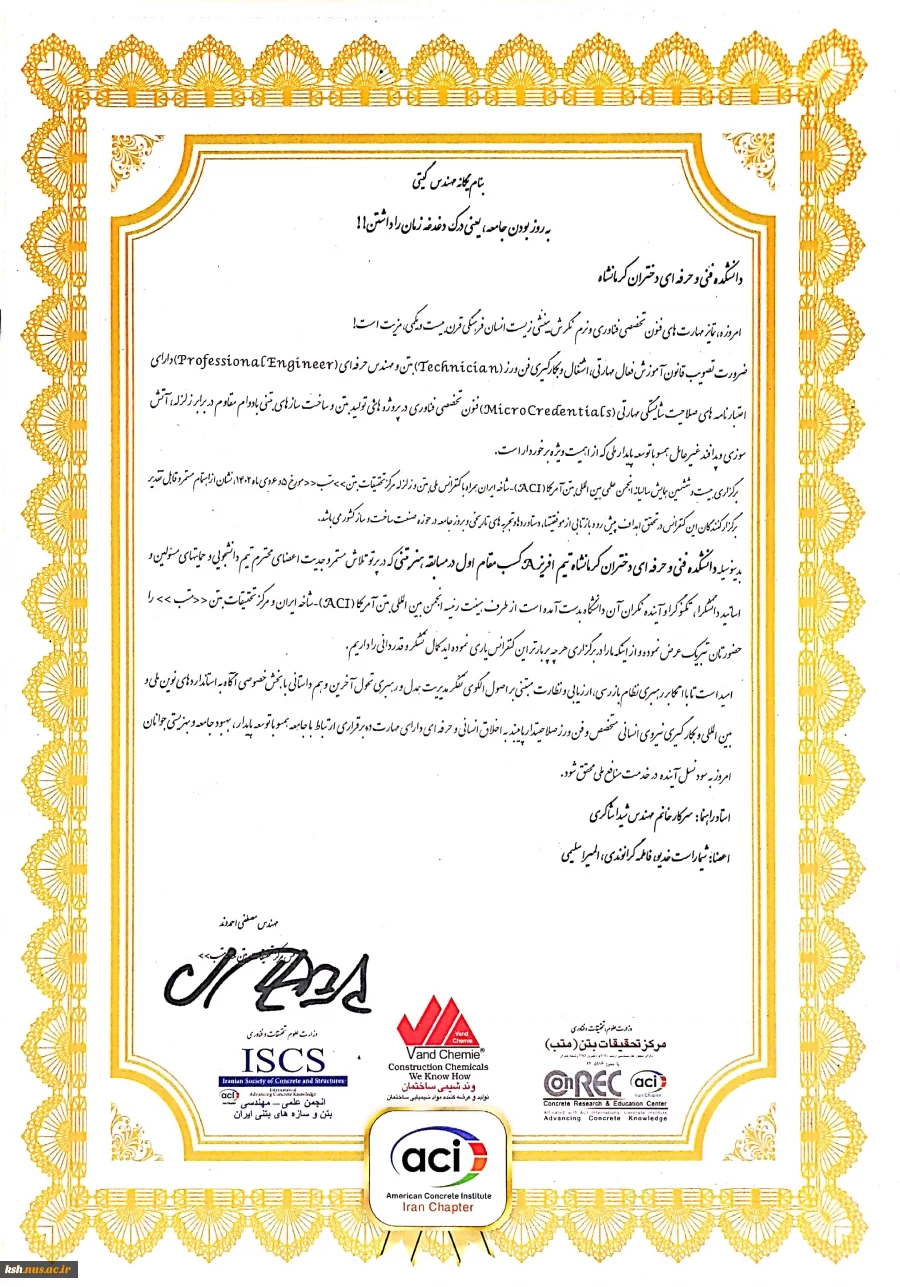 بنام یگانه مهندس گیتی
به روز بودن جامعه، یعنی درک دغدغه زمان را داشتن!!
دانشکده فنی و حرفه ای دختران کرمانشاه
امروزه، تمایز مهارت های فنون تخصصی فناوری و نرم نگرش بینشی زیست انسان فرهنگی قرن بیست و یکمی، مزیت است!
ضرورت تصویب قانون آموزش فعال مهارتی، اشتغال و بکارگیری فن ورز (Technician) بتن و مهندس حرفه ای (Professional Engineer) دارای
اعتبارنامه های صلاحیت شایستگی مهارتی (MicroCredentials) فنون تخصصی فناوری در پروژه های تولید بتن و ساخت سازهای بتنی بادوام مقاوم در برابر زلزله، آتش
سوزی و پدافند غیرعامل همسو با توسعه پایدار ملی که از اهمیت ویژه برخوردار است.
برگزاری بیست و ششمین همایش سالیانه انجمن علمی بین المللی بتن آمریکا (ACI)-شاخه ایران همراه با کنفرانس ملی بتن و زلزله مرکز تحقیقات بتن >>متب<< مورخ ۵ و ۶ دی ماه ۱۴۰۲، نشان از اهتمام مستمر و قابل تقدیر
برگزارکنندگان این کنفرانس در تحقق اهداف پیش رو و بازتابی از موفقیتها، دستاوردها و تجربه های تاریخی و بروز جامعه در حوزه صنعت ساخت و ساز کشور می باشد.
بدینوسیله دانشکده فنی و حرفه ای دختران کرمانشاه تیم افریز A کسب مقام اول در مسابقه هنر بتنی که در پرتو تلاش مستمر و جدیت اعضای محترم تیم دانشجویی و حمایتهای مسئولین و
اساتید دانشگرا، تکنوگرا و آینده نگران آن دانشگاه بدست آمده است از طرف هیئت رئیسه انجمن بین المللی بتن آمریکا (ACI)-شاخه ایران و مرکز تحقیقات بتن <<متب>> را
حضورتان تبریک عرض نموده و از اینکه ما را در برگزاری هر چه پربارتر این کنفرانس یاری نموده اید کمال تشکر و قدردانی را داریم.
امید است تا با اتکا بر رهبری نظام بازرسی، ارزیابی و نظارت مبتنی بر اصول الگوی تفکر مدیریت همدل و رهبری تحول آخرین و هم داستانی با بخش خصوصی آگاه به استانداردهای نوین ملی و
بین المللی و بکارگیری نیروی انسانی متخصص و فن ورز صلاحیتدار پایبند به اخلاق انسانی و حرفه ای دارای مهارت ده برقراری ارتباط با جامعه همسو با توسعه پایدار، بهبود جامعه و بهزیستی جوانان
امروز به سود نسل آینده در خدمت منافع ملی محقق شود.
استاد راهنما: سرکار خانم مهندس شیدا شاکری
اعضا: شیما راست خدیو، فاطمه گراوندی، المیرا سلیمی
مهندس مصطفی احمدوند
وزارت علوم، تحقیقات و فناوری
ISCS
Iranian Society of Concrete and Structures
aci
International
Advancing Concrete Knowledge
انجمن علمی – مهندسی
بتن و سازه های بتنی ایران
Vand Chemie
Vand Chemie®
Construction Chemicals
We Know How
وند شیمی ساختمان
تولید و عرضه کننده مواد شیمیایی ساختمان
وزارت علوم، تحقیقات و فناوری
مرکز تحقیقات بتن (متب)
ConREC aci
Iran Chapter
Concrete Research & Education Center
Affiliated with ACI International Concrete Institute
Advancing Concrete Knowledge
aci
American Concrete Institute
Iran Chapter
ksh.nus.ac.ir